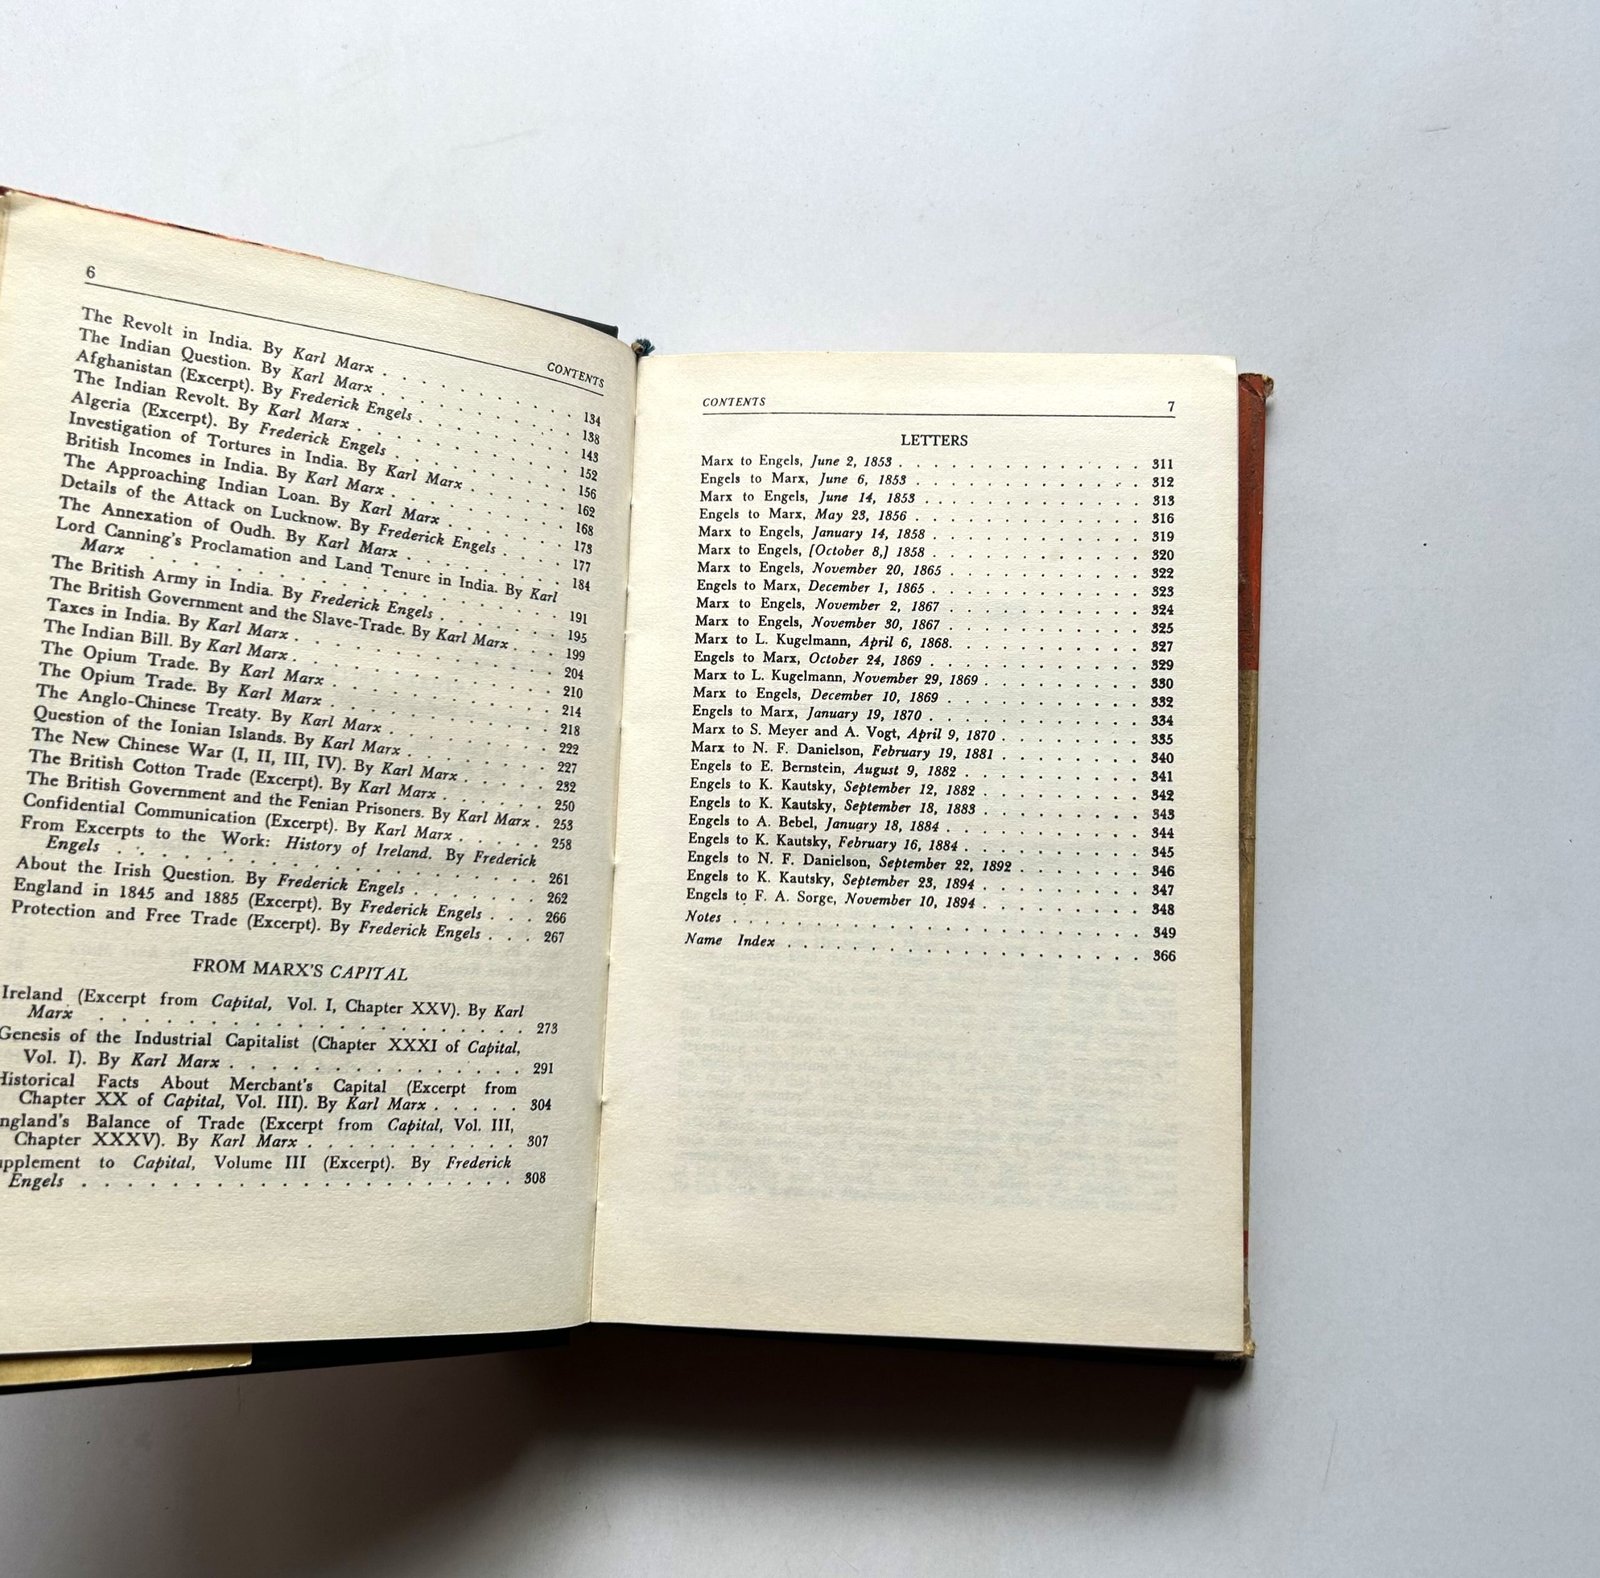 6
CONTENTS
The Revolt in India. By Karl Marx . . . . . . . . . . . 134
The Indian Question. By Karl Marx . . . . . . . . . . . 138
Afghanistan (Excerpt). By Frederick Engels . . . . . . . . . 143
The Indian Revolt. By Karl Marx . . . . . . . . . . . 152
Algeria (Excerpt). By Frederick Engels . . . . . . . . . . 156
Investigation of Tortures in India. By Karl Marx . . . . . . 162
British Incomes in India. By Karl Marx . . . . . . . . . 168
The Approaching Indian Loan. By Karl Marx . . . . . . . 173
Details of the Attack on Lucknow. By Frederick Engels . . . . 177
The Annexation of Oudh. By Karl Marx . . . . . . . . . 184
Lord Canning's Proclamation and Land Tenure in India. By Karl
Marx . . . . . . . . . . . . . . . . . . . . 191
The British Army in India. By Frederick Engels . . . . . . . 195
The British Government and the Slave-Trade. By Karl Marx . . . 199
Taxes in India. By Karl Marx . . . . . . . . . . . . . 204
The Indian Bill. By Karl Marx . . . . . . . . . . . . . 210
The Opium Trade. By Karl Marx . . . . . . . . . . . 214
The Opium Trade. By Karl Marx . . . . . . . . . . . 218
The Anglo-Chinese Treaty. By Karl Marx . . . . . . . . . 222
Question of the Ionian Islands. By Karl Marx . . . . . . . . 227
The New Chinese War (I, II, III, IV). By Karl Marx . . . . . 232
The British Cotton Trade (Excerpt). By Karl Marx . . . . . . 250
The British Government and the Fenian Prisoners. By Karl Marx . 253
Confidential Communication (Excerpt). By Karl Marx . . . . . 258
From Excerpts to the Work: History of Ireland. By Frederick
Engels . . . . . . . . . . . . . . . . . . . . 261
About the Irish Question. By Frederick Engels . . . . . . . 262
England in 1845 and 1885 (Excerpt). By Frederick Engels . . . 266
Protection and Free Trade (Excerpt). By Frederick Engels . . . 267
FROM MARX'S CAPITAL
Ireland (Excerpt from Capital, Vol. I, Chapter XXV). By Karl
Marx . . . . . . . . . . . . . . . . . . . . . 273
Genesis of the Industrial Capitalist (Chapter XXXI of Capital,
Vol. I). By Karl Marx . . . . . . . . . . . . . . . 291
Historical Facts About Merchant's Capital (Excerpt from
Chapter XX of Capital, Vol. III). By Karl Marx . . . . . 304
ngland's Balance of Trade (Excerpt from Capital, Vol. III,
Chapter XXXV). By Karl Marx . . . . . . . . . . . 307
upplement to Capital, Volume III (Excerpt). By Frederick
Engels . . . . . . . . . . . . . . . . . . . . . 308
CONTENTS 7
LETTERS
Marx to Engels, June 2, 1853 . . . . . . . . . . . . . . 311
Engels to Marx, June 6, 1853 . . . . . . . . . . . . . 312
Marx to Engels, June 14, 1853 . . . . . . . . . . . . . 313
Engels to Marx, May 23, 1856 . . . . . . . . . . . . . 316
Marx to Engels, January 14, 1858 . . . . . . . . . . . . 319
Marx to Engels, [October 8,] 1858 . . . . . . . . . . . . 320
Marx to Engels, November 20, 1865 . . . . . . . . . . . 322
Engels to Marx, December 1, 1865 . . . . . . . . . . . . 323
Marx to Engels, November 2, 1867 . . . . . . . . . . . 324
Marx to Engels, November 30, 1867 . . . . . . . . . . . 325
Marx to L. Kugelmann, April 6, 1868. . . . . . . . . . . 327
Engels to Marx, October 24, 1869 . . . . . . . . . . . . 329
Marx to L. Kugelmann, November 29, 1869 . . . . . . . . . 330
Marx to Engels, December 10, 1869 . . . . . . . . . . . 332
Engels to Marx, January 19, 1870 . . . . . . . . . . . . 334
Marx to S. Meyer and A. Vogt, April 9, 1870 . . . . . . . . 335
Marx to N. F. Danielson, February 19, 1881 . . . . . . . . 340
Engels to E. Bernstein, August 9, 1882 . . . . . . . . . . 341
Engels to K. Kautsky, September 12, 1882 . . . . . . . . . 342
Engels to K. Kautsky, September 18, 1883 . . . . . . . . . 343
Engels to A. Bebel, January 18, 1884 . . . . . . . . . . . 344
Engels to K. Kautsky, February 16, 1884 . . . . . . . . . . 345
Engels to N. F. Danielson, September 22, 1892 . . . . . . . 346
Engels to K. Kautsky, September 23, 1894 . . . . . . . . . 347
Engels to F. A. Sorge, November 10, 1894 . . . . . . . . . 348
Notes . . . . . . . . . . . . . . . . . . . . . . 349
Name Index . . . . . . . . . . . . . . . . . . . 366